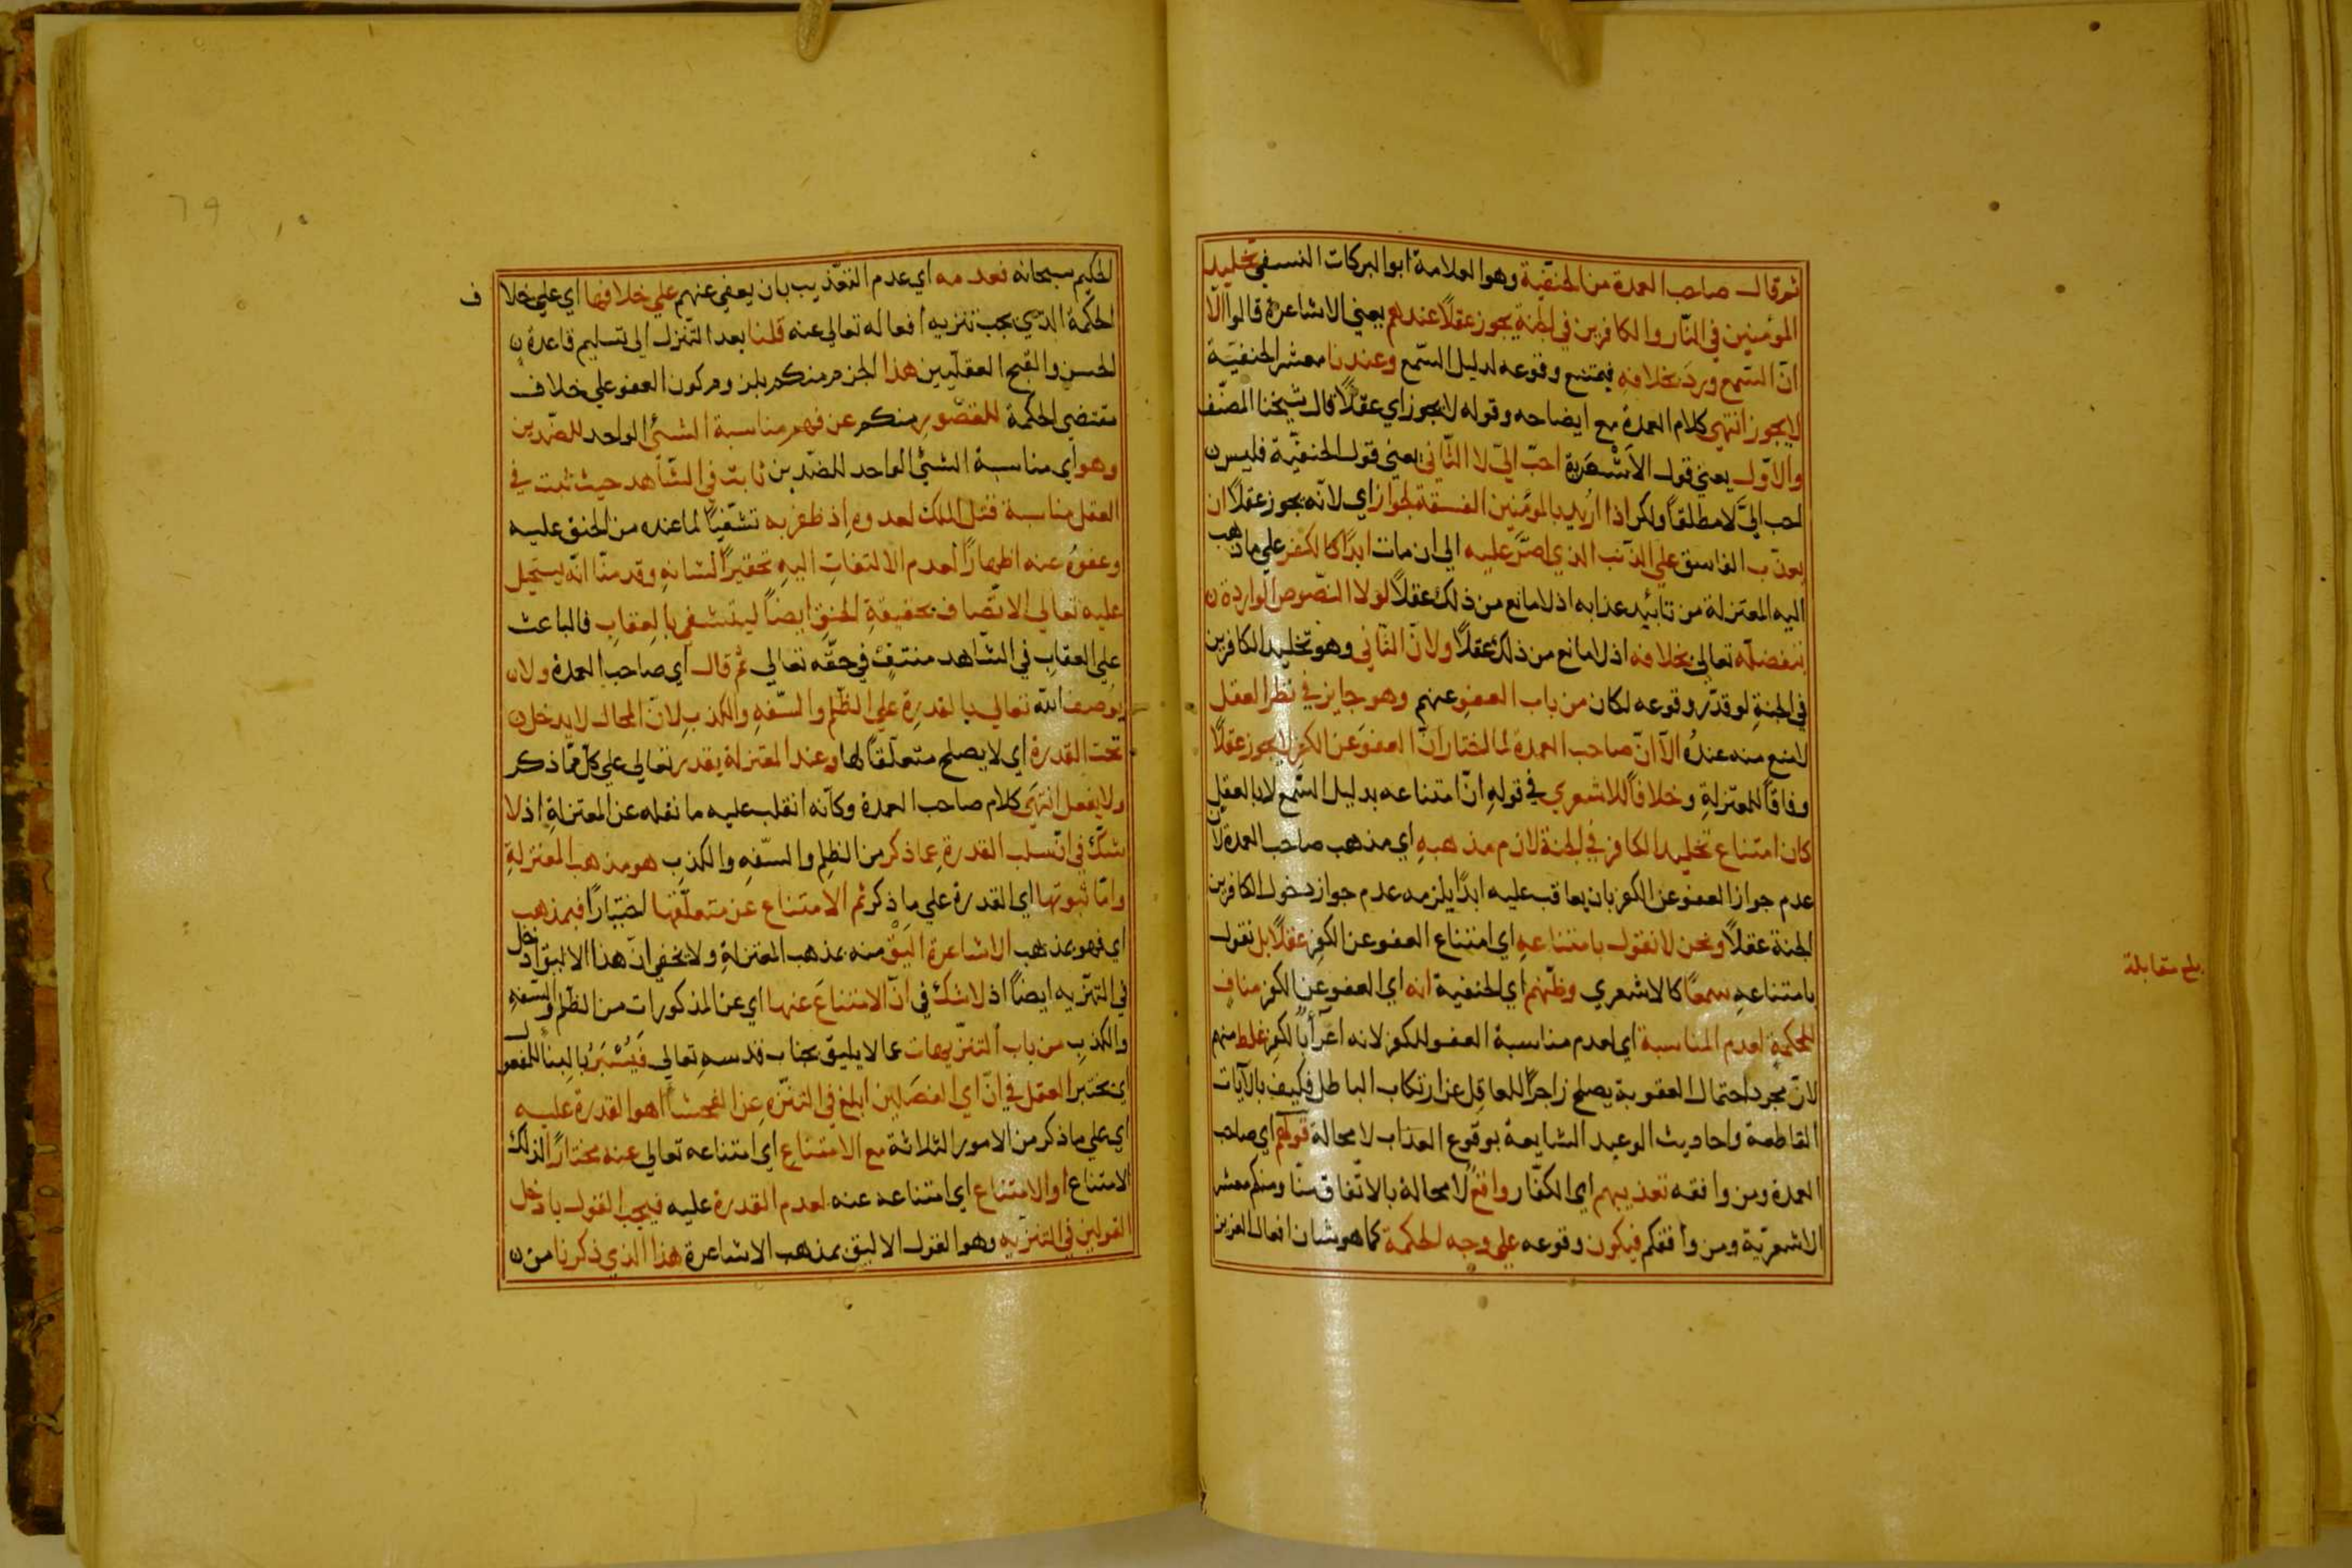 ثم قال صاحب العمدة من الحنفية وهو العلامة ابو البركات النسفي تخليد
المؤمنين في النار والكافرين في الجنة يجوز عقلاً عندهم يعني الاشاعرة قالوا الا
انّ السّمع وردَ بخلافه فيمتنع وقوعه لدليل السّمع وعندنا معشر الحنفيّة
لا يجوز انتهي كلام العمدة مع ايضاحه وقوله لا يجوز اي عقلاً قال شيخنا المصنّف
والاوّل يعني قول الاَشْعَرية احبّ اليّ لا الثّاني يعني قول الحنفيّة فليس
احب اليَّ لا مطلقاً ولكن اذا اُريد بالمؤمنين الفسقة لجواز اي لانّه يجوز عقلاً ان
يعذّب الفاسق علي الذّنب الذي اصَرَّ عليه الي ان مات ابدًا كالكفر علي ما ذهب
اليه المعتزلة من تأبيد عذابه اذ لا مانع من ذلك عقلاً لولا النّصوص الواردة
بتفضّله تعالي بخلافه اذ لا مانع من ذلك عقلاً ولانّ الثّاني وهو تخليد الكافرين
في الجنةِ لو قدّر وقوعه لكان من باب العفوِ عنهم وهو جايز في نظر العقل
لا منع منه عندُه الاّ انّ صاحب العمدة لما اختار انّ العفوَ عن الكفر لا يجوز عقلاً
وفاقاً للمعتزلةِ وخلافاً للاشعري في قولهِ انّ امتناعه بدليل السّمع لا بالعقل
كان امتناع تخليد الكافر في الجنة لازم مذهبهِ اي مذهب صاحب العمدة لانّ
عدم جواز العفو عن الكفر بان يعاقب عليه ابدًا يلزمه عدم جواز دخول الكافرين
الجنة عقلاً ونحن لا نقول بامتناعهِ اي امتناع العفو عن الكفر عقلاً بل نقول
بامتناعهِ سمعًا كالاشعري وظنّهم اي الحنفية انه اي العفو عن الكفر منافٍ
للحكمةِ لعدم المناسبة اي لعدم مناسبة العفو للكفر لانه اغرآءٌ بالكفر غلط منهم
لانّ مجرد احتمال العقوبة يصلح زاجرًا للعاقل عن ارتكاب الباطل فكيف بالآيات
القاطعة واحاديث الوعيد الشايعة بوقوع العذاب لا محالة قولهم اي صاحب
العمدة ومن وافقه تعذيبهم اي الكفّار واقعٌ لا محالة بالاتّفاق منّا ومنكم معشر
الاشعريّة ومن وافقكم فيكون وقوعه علي وجه الحكمة كما هو شان افعال العزيز
بلغ مقابلة
الحكيم سبحانه فعدمه اي عدم التعّذيب بان يعفي عنهم علي خلافها اي علي خلا
ف
الحكمة الذي يجب تنزيه افعاله تعالي عنه قلنا بعد التّنزل الي تسليم قاعدة
الحسن والقبح العقليّين هذا الجزم منكم بلزوم كون العفو علي خلاف
مقتضي الحكمة للقصّور منكم عن فهم مناسبة الشئ الواحد للضّدين
وهو اي مناسبة الشئ الواحد للضّدين ثابت في الشّاهد حيث ثبت في
العقل مناسبة قتل الملك لعدوه اِذ ظفر به تشفّياً لما عنده من الحنق عليه
وعفوُه عنه اظهارًا لعدم الالتفاتِ اليهِ تحقيرًا لشانهِ وقدمنّا انّه يستحيل
عليه تعالي الاتّصاف بحقيقةِ الحنقِ ايضاً ليتشفي بالعِقابِ فالباعث
علي العقابِ في الشّاهد منتفٍ في حقّه تعالي ثمّ قال اي صاحب العمدة ولا
يُوصف اللّه تعالي بالقدرةِ علي الظّلم والسّفهِ والكذبِ لانّ المحال لا يدخل
تحت القدرة اي لا يصلح متعلّقاً لها وعند المعتزلة يقدر تعالي علي كلّ ممّا ذكر
ولا يفعل انتهَي كلام صاحب العمدة وكأنه انقلب عليه ما نقله عن المعتزلةِ اذ لا
شكّ في انّ سلب القدرةِ عما ذكر من الظلمِ والسّفهِ والكذبِ هو مذهب المعتزلةِ
وامّا ثبوتها اي القدرة علي ما ذكر ثم الامتناع عن متعلّقها اختيارًا فبمذهب
اي فهو بمذهب الاشاعرة اليَقُ منه بمذهب المعتزلةِ ولا يخفي انّ هذا الاليق ادخل
في التنزّيه ايضاً اذ لا شك في انّ الامتناعَ عنها اي عن المذكورات من الظلم والسّفهِ
والكذبِ من باب التنزّيهات عما لا يليق بجناب قدسهِ تعالي فَيُسْبَرُ بالبنآ للمفعول
اي يختبر العقل في انّ اي الفصَلين ابلغ في التنزّهِ عن الفحشآ اهو القدرة عليه
اي علي ما ذكر من الامور الثلاثة مع الامتناع اي امتناعه تعالي عنه مختارًا لذلك
الامتناع او الامتناع اي امتناعه عنه لعدم القدرة عليه فيجب القول بادخل
القولين في التنزّيهِ وهو القول الاليق بمذهب الاشاعرة هذا الذي ذكرنا من